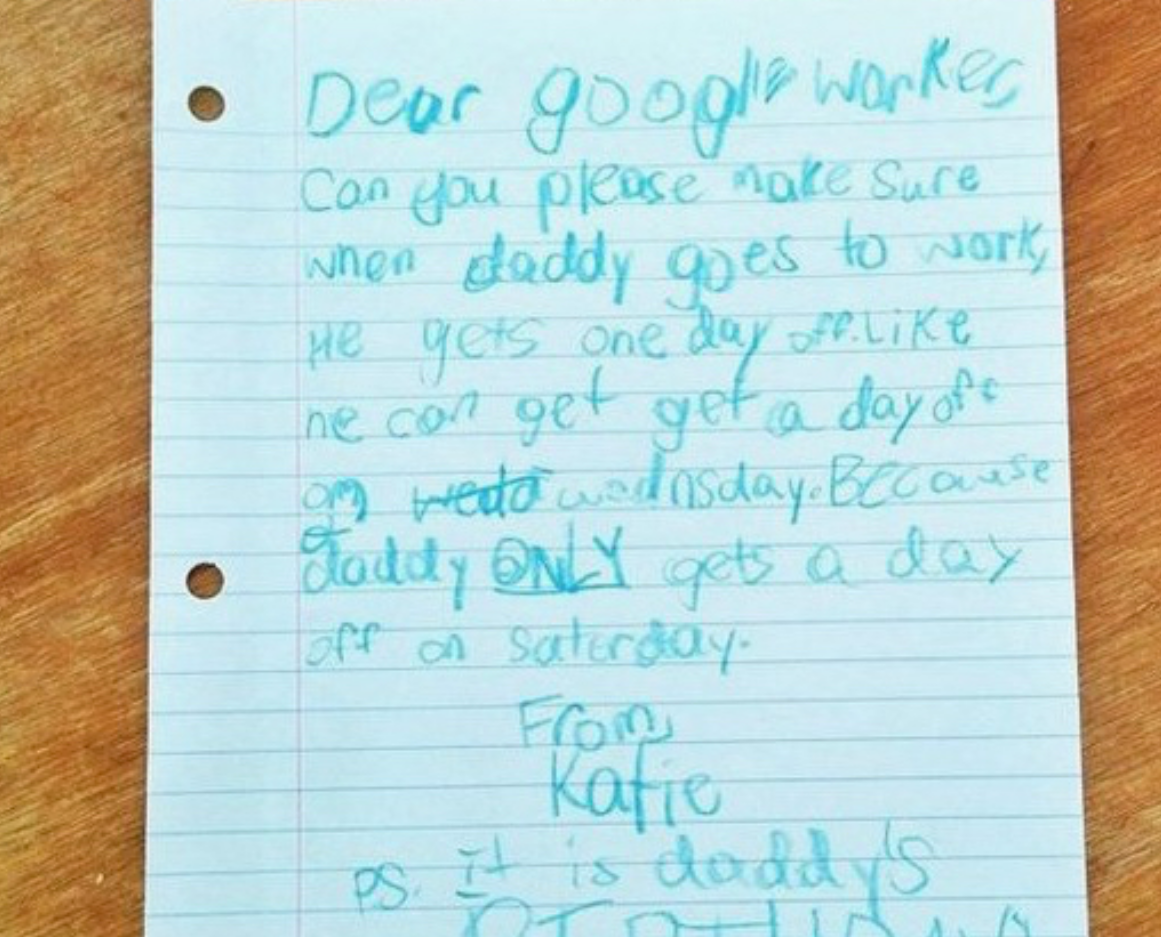 Dear google worker,
Can you please make sure
when daddy goes to work,
He gets one day off. Like
he can get get a day off
on wednsday. Because
daddy ONLY gets a day
off on saterday.
From,
Katie
PS. it is daddy's